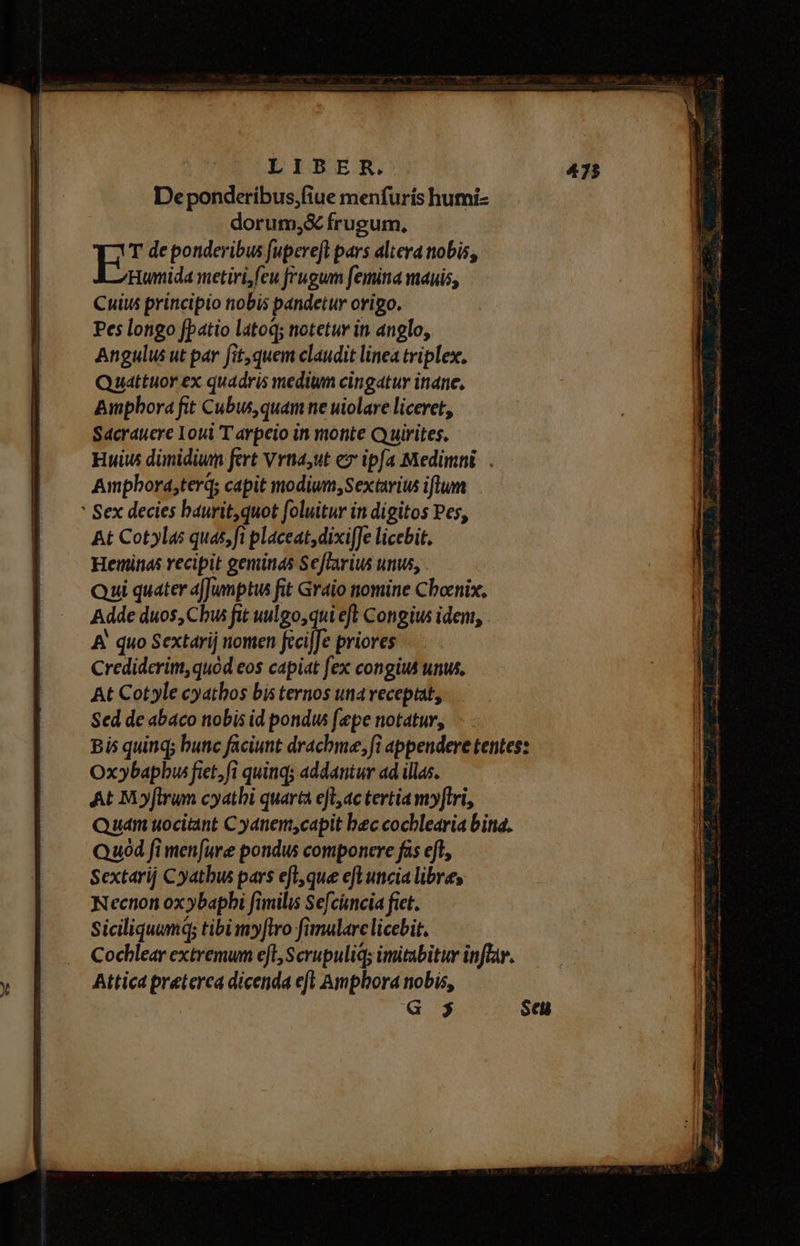 LIBER. 475
De ponderibus, ſiue menſuris humi-
dorum, & frugum,
ET de ponderibus ſupereſt pars altera nobis,
Humida metiri, ſeu frugum ſemina mauis,
Cuius principio nobis pandetur origo.
Pes longo ſpatio latoq; notetur in anglo,
Angulus ut par ſit, quem claudit linea triplex.
Quattuor ex quadris medium cingatur inane,
Amphora fit Cubus, quam ne uiolare liceret,
Sacrauere Ioui Tarpeio in monte Quirites.
Huius dimidium fert Vrna, ut & ipſa Medimni.
Amphora, terq; capit modium, Sextarius iſtum
Sex decies haurit, quot ſoluitur in digitos Pes,
At Cotylas quas, ſi placeat, dixiſſe licebit.
Heminas recipit geminas Seſtarius unus,
Qui quater aſſumptus fit Graio nomine Chœnix.
Adde duos, Chus fit uulgo, qui eſt Congius idem,
A quo Sextarij nomen feciſſe priores
Crediderim, quòd eos capiat ſex congius unus.
At Cotyle cyathos bis ternos una receptat,
Sed de abaco nobis id pondus ſæpe notatur,
Bis quinq; hunc faciunt drachmæ, ſi appendere tentes:
Oxybaphus fiet, ſi quinq; addantur ad illas.
At Myſtrum cyathi quarta eſt, ac tertia myſtri,
Quam uocitant Cyanem, capit hæc cochlearia bina.
Quòd ſi menſuræ pondus componere fas eſt,
Sextarij Cyathus pars eſt, quæ eſt uncia libræ,
Necnon oxybaphi ſimilis Seſcūncia fiet.
Siciliquumq; tibi myſtro ſimulare licebit.
Cochlear extremum eſt, Scrupuliq; imitabitur inſtar.
Attica præterea dicenda eſt Amphora nobis,
G 5 Seu